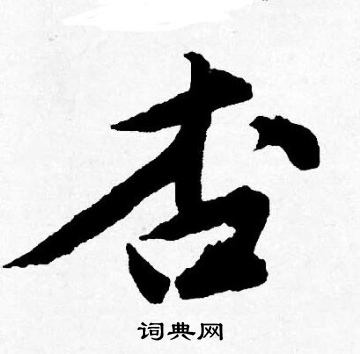 杏
词典网